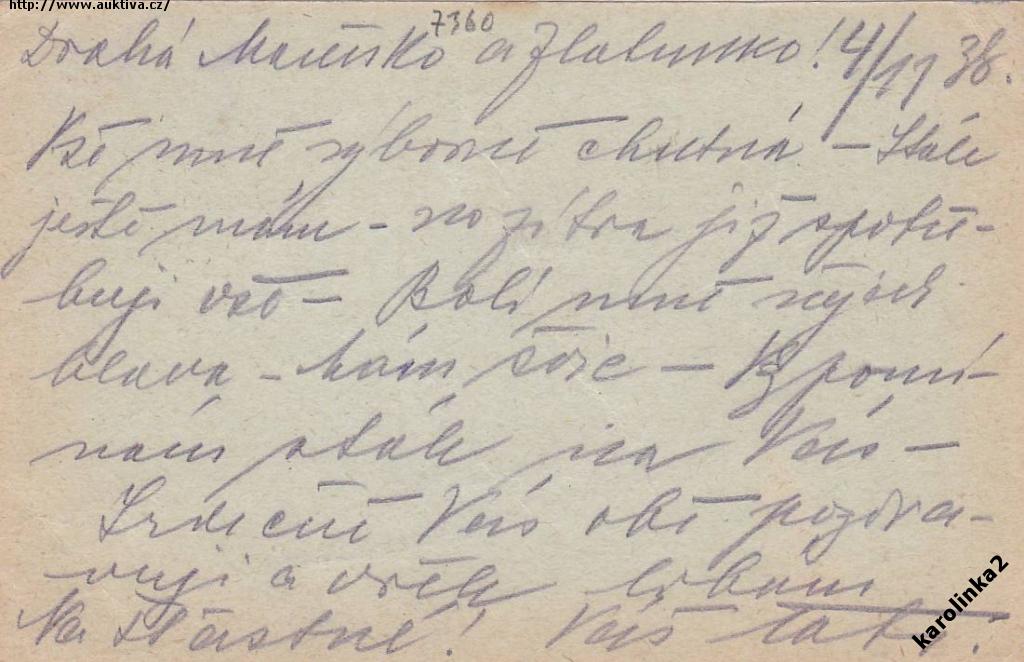 http://www.auktiva.cz/
7360
Drahá Mariško a Zlatunko! 4/11 38.
Vše mně výborně chutná – Stále
ještě mám – no zítra již spotře-
buji vše – Bolí mně
hlava – Mám – Vzpomí-
nám stále na Vás –
Srdečně Vás obě pozdra-
vuji a vřele líbám
Na šťastné! Váš táta.
karolinka2